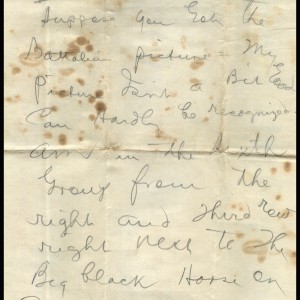 Suppose you Got the
Battalion picture = My
Picture Isnt a Bit Good
Can Hardly be recognized
am in the sixth
Group from the
right and third row
right next to the
Big black Horse on